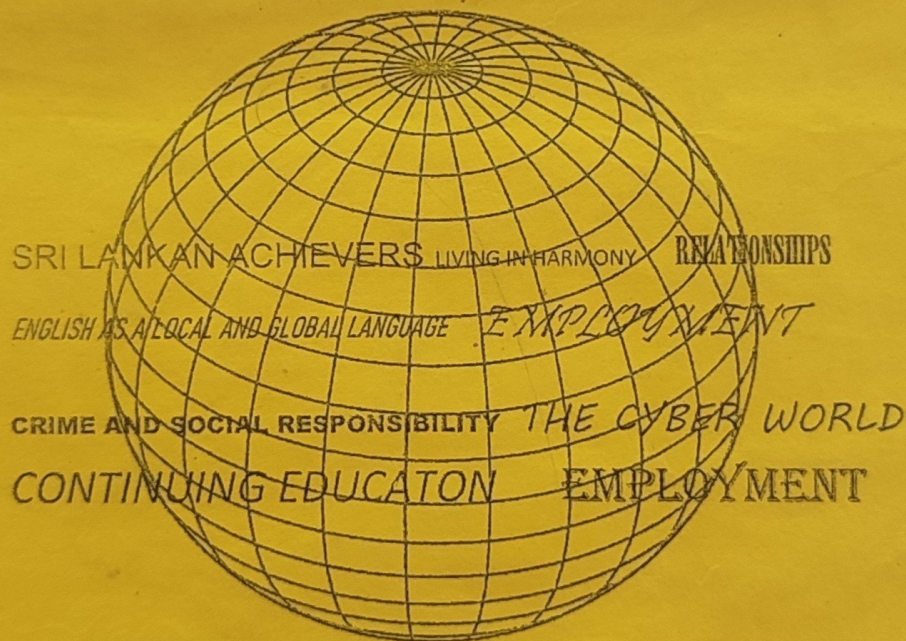 SRI LANKAN ACHIEVERS LIVING IN HARMONY RELATIONSHIPS
ENGLISH AS A LOCAL AND GLOBAL LANGUAGE EMPLOYMENT
CRIME AND SOCIAL RESPONSIBILITY THE CYBER WORLD
CONTINUING EDUCATON EMPLOYMENT